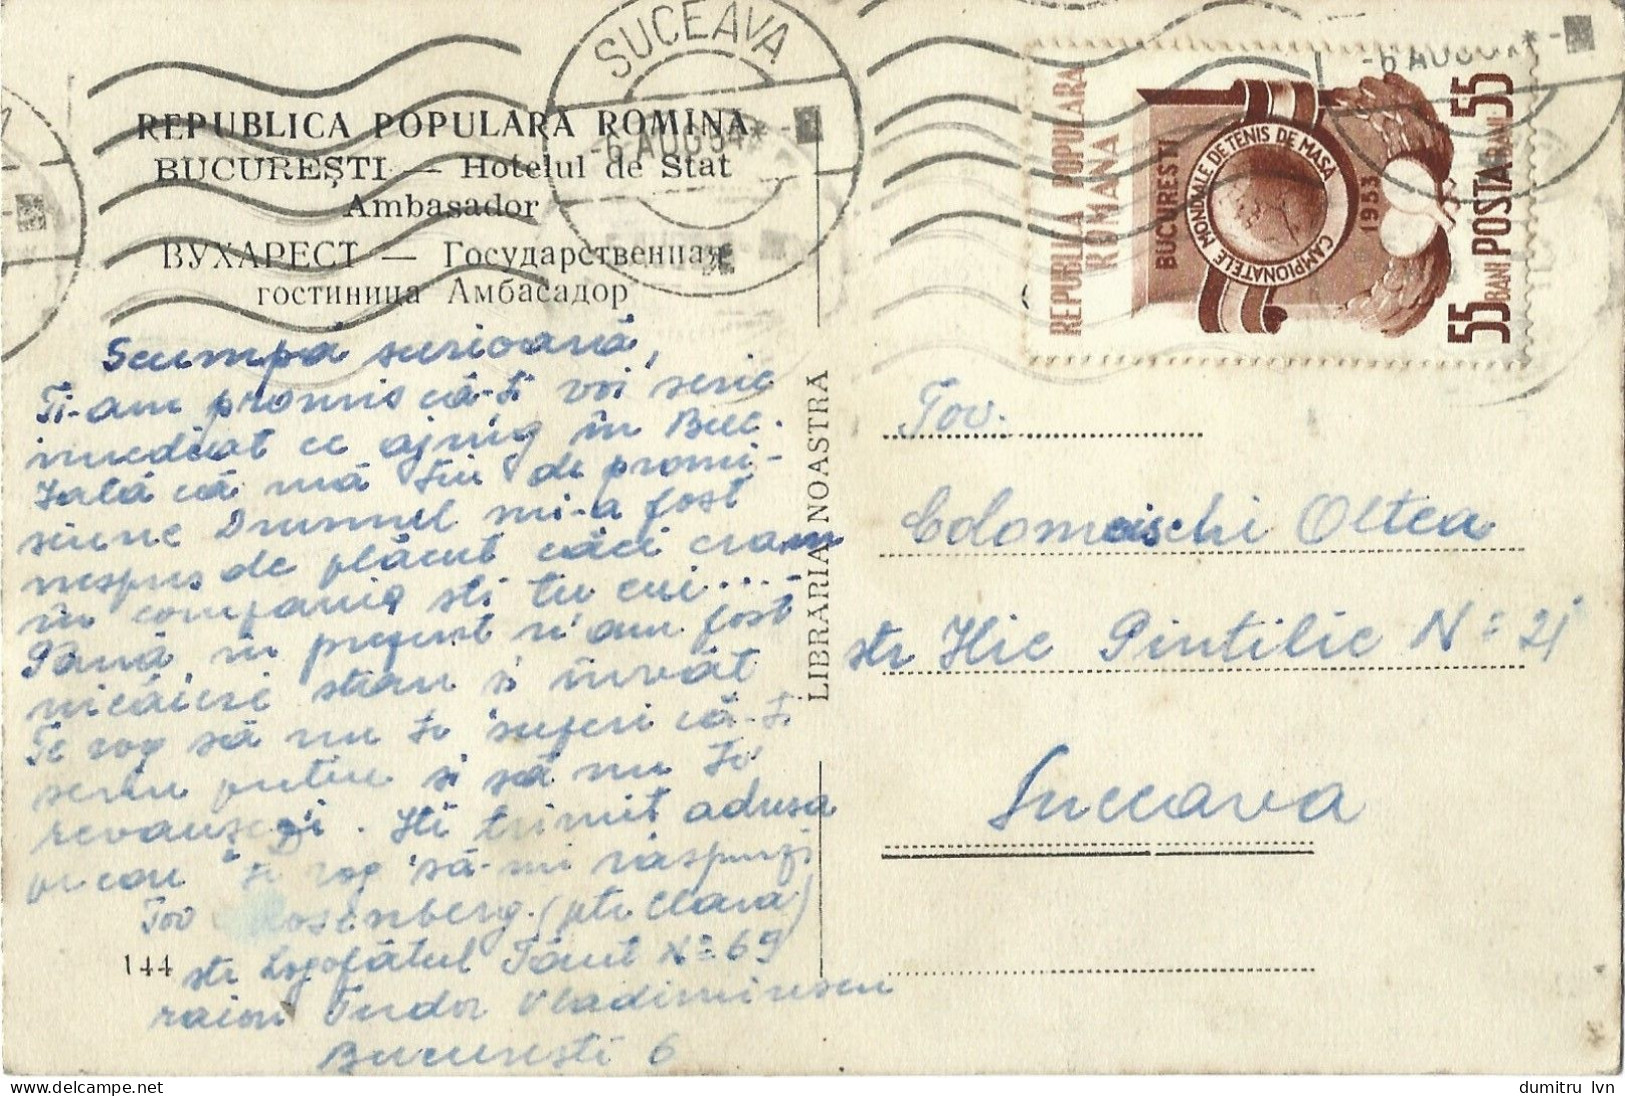 REPUBLICA POPULARĂ ROMINĂ
BUCUREȘTI — Hotelul de Stat
Ambasador
БУХАРЕСТ — Государственная
гостиница Амбасадор
Scumpă surioară,
Ți-am promis că-ți voi scrie
imediat ce ajung în Buc.
Iată că mă țiu de promi-
siune Drumul mi-a fost
nespus de plăcut căci eram
în compania sti tu cui....
Până în prezent n'am fost
nicăieri stau și învăț
Te rog să nu te superi că-ți
scriu puțin și să nu te
revanșezi. Iți trimit adresa
pe care te rog să-mi răspunzi
Tov Rosenberg (ptr Clara)
str Logofătul Tăut Nº 69
raion Tudor Vladimirescu
București 6
144
LIBRARIA NOASTRĂ
SUCEAVA
-6 AUG 54
-6 AUG
REPUBLICA POPULARA
ROMANA
BUCURESTI
CAMPIONATELE MONDIALE DE TENIS DE MASA
1953
55 BANI POSTA BANI 55
Tov.
Colomeischi Oltea
str Ilie Pintilie Nº 21
Suceava
dumitru lvn